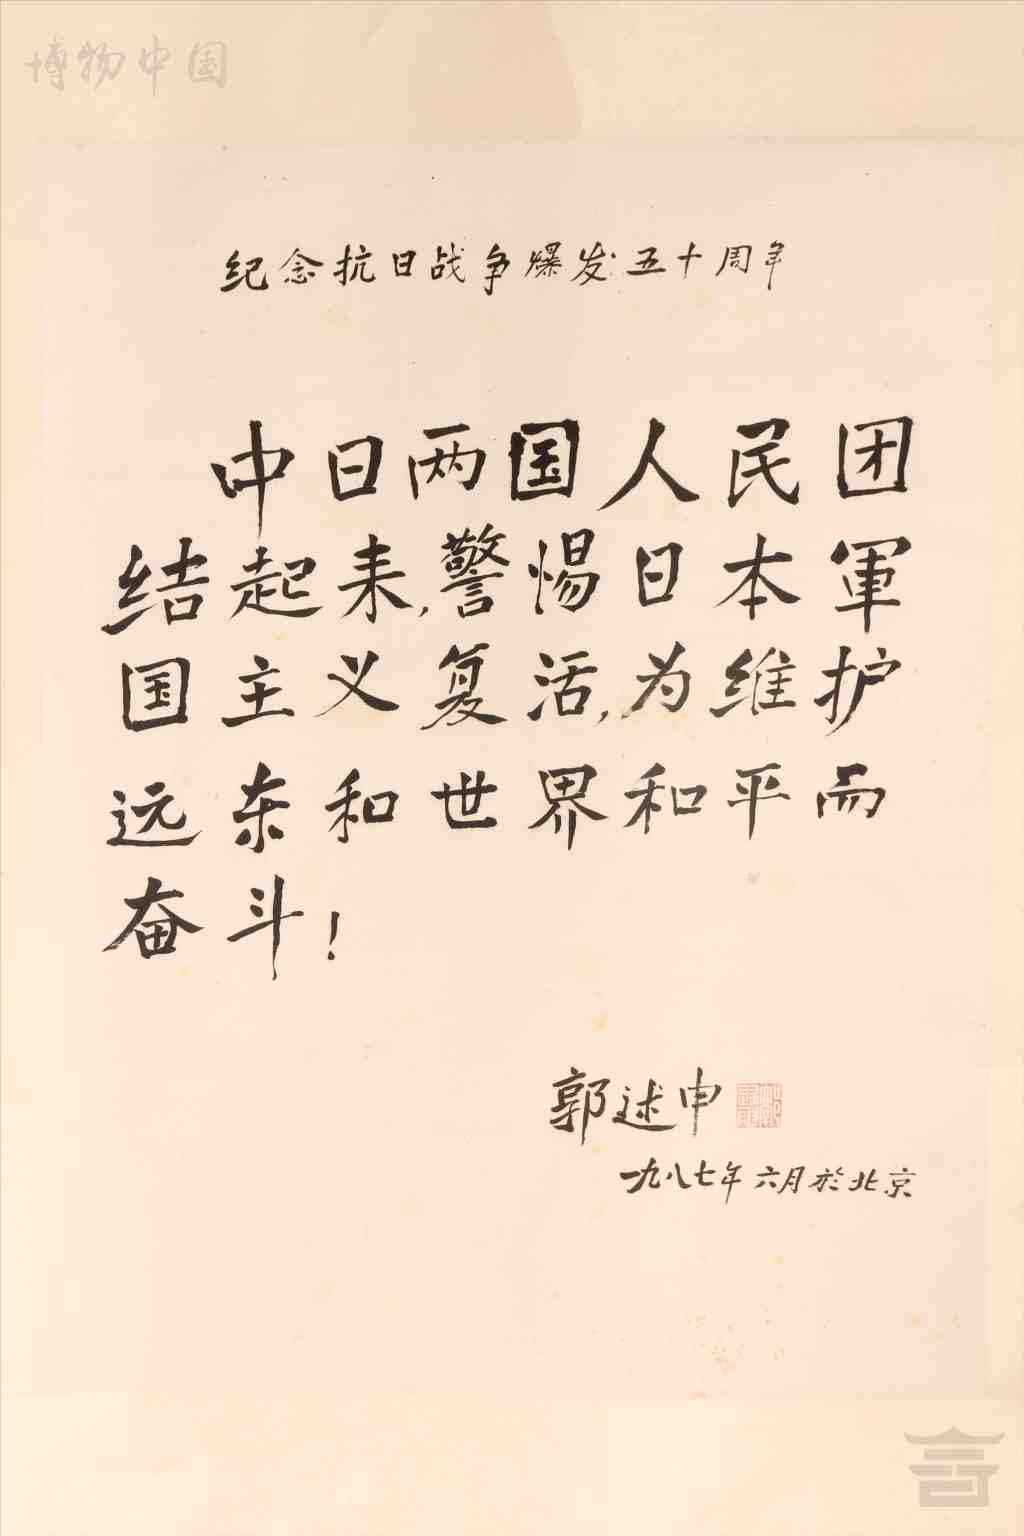 博物中国
纪念抗日战争爆发五十周年
中日两国人民团
结起来,警惕日本軍
国主义复活,为维护
远东和世界和平而
奋斗!
郭述申
一九八七年六月於北京